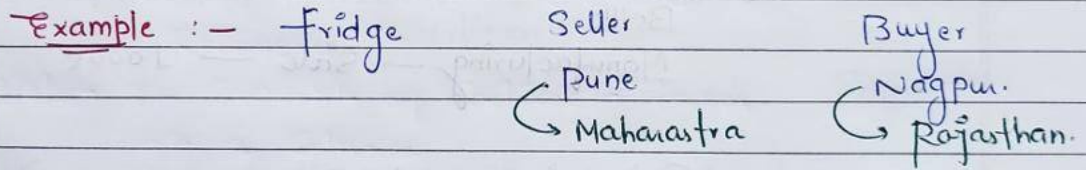 Example :- Fridge Seller Buyer
Pune Nagpur.
Maharastra Rajasthan.